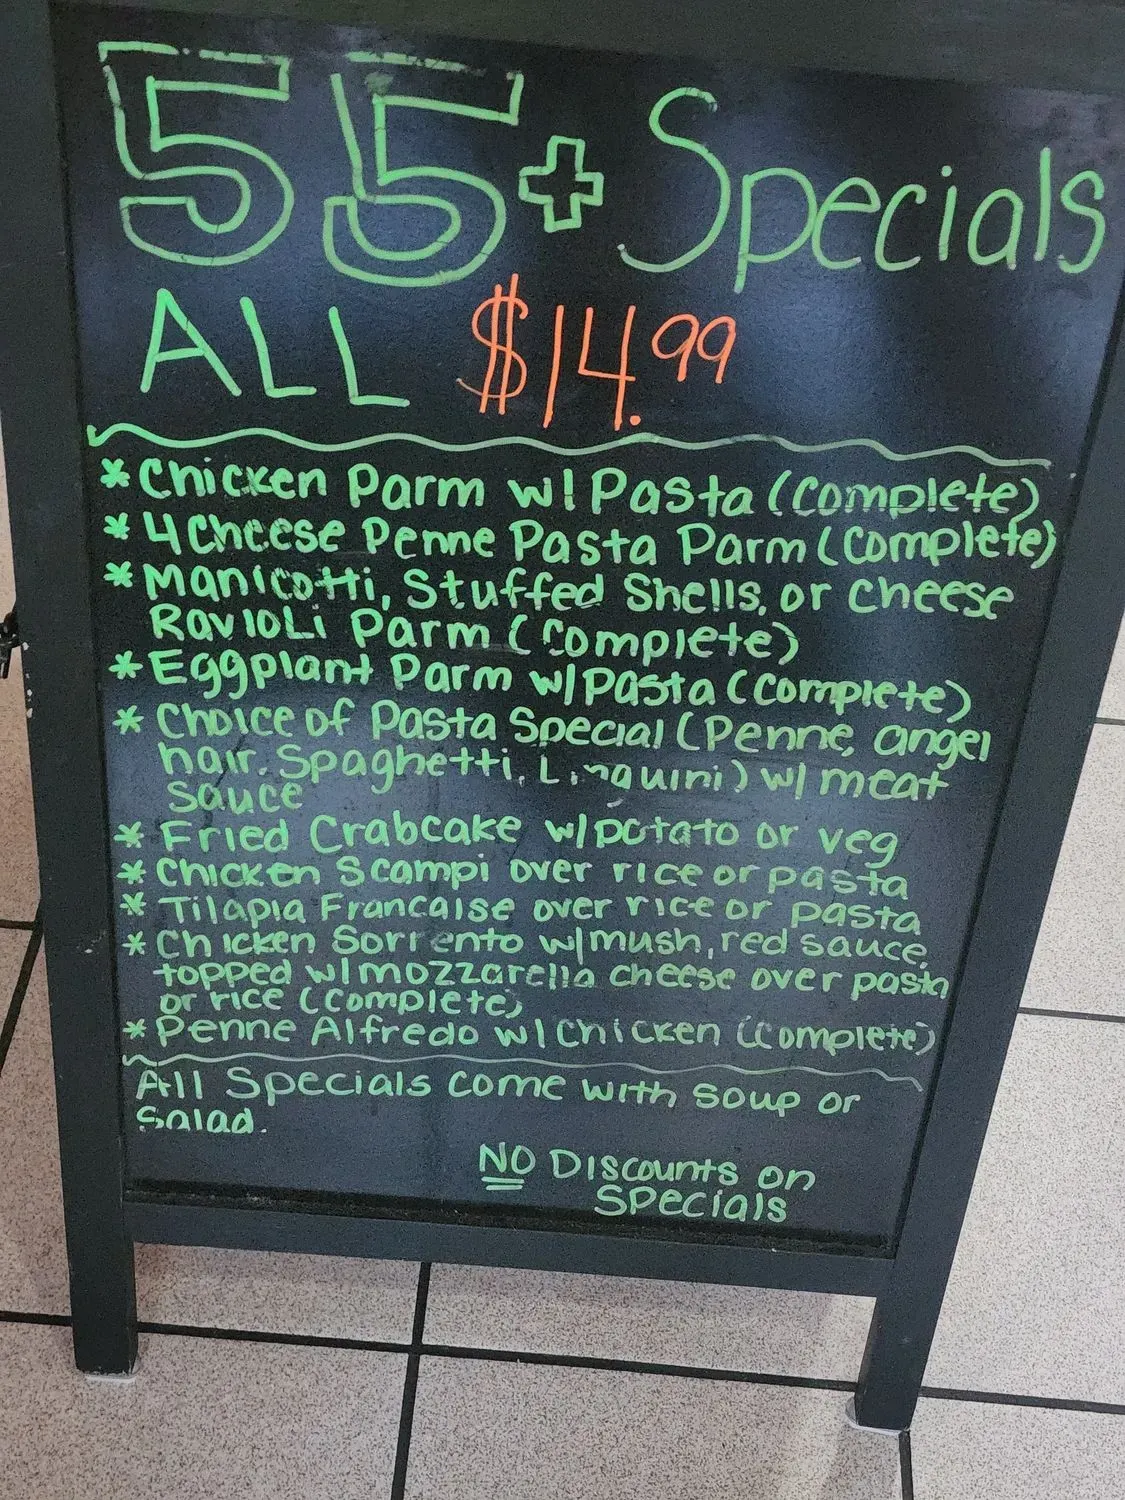 55+ Specials
ALL $14.99
* Chicken Parm w/ Pasta (Complete)
* 4 Cheese Penne Pasta Parm (Complete)
* Manicotti, Stuffed Shells, or Cheese
Ravioli Parm (Complete)
* Eggplant Parm w/ Pasta (Complete)
* Choice of Pasta Special (Penne, angel
hair, Spaghetti, Linguini) w/ meat
sauce
* Fried Crabcake w/ potato or veg
* Chicken Scampi over rice or pasta
* Tilapia Francaise over rice or pasta
* Chicken Sorrento w/ mush, red sauce,
topped w/ mozzarella cheese over pasta
or rice (Complete)
* Penne Alfredo w/ Chicken (Complete)
All Specials come with soup or
Salad.
NO Discounts on
Specials